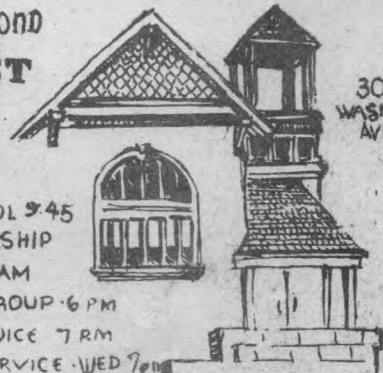 OND
ST
30
WAS
AV
OL 9:45
SHIP
AM
ROUP·6 PM
VICE 7 PM
ERVICE·WED 7PM